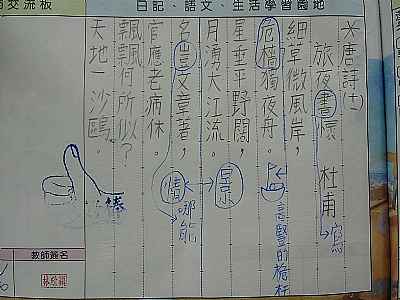 日記、語文、生活學習園地
交流板
*唐詩(七)
旅夜書懷 杜甫 寫
細草微風岸，
危檣獨夜舟。
高豎的桅杆
星垂平野闊，
月湧大江流。
景
名豈文章著，
情
哪能
官應老病休。
飄飄何所似？
天地一沙鷗。
棒
教師簽名